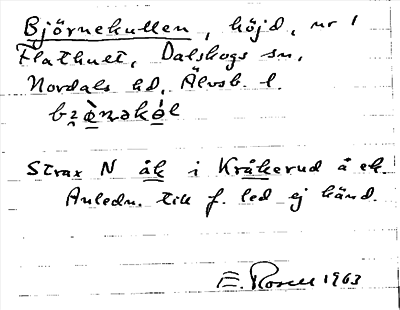 Björnekullen, höjd, nr 1
Flathult, Dalskogs sn,
Nordals hd, Älvsb. l.
Strax N åk i Kråkerud å ek.
Anledn. till f. led ej känd.
E. Rosell 1963